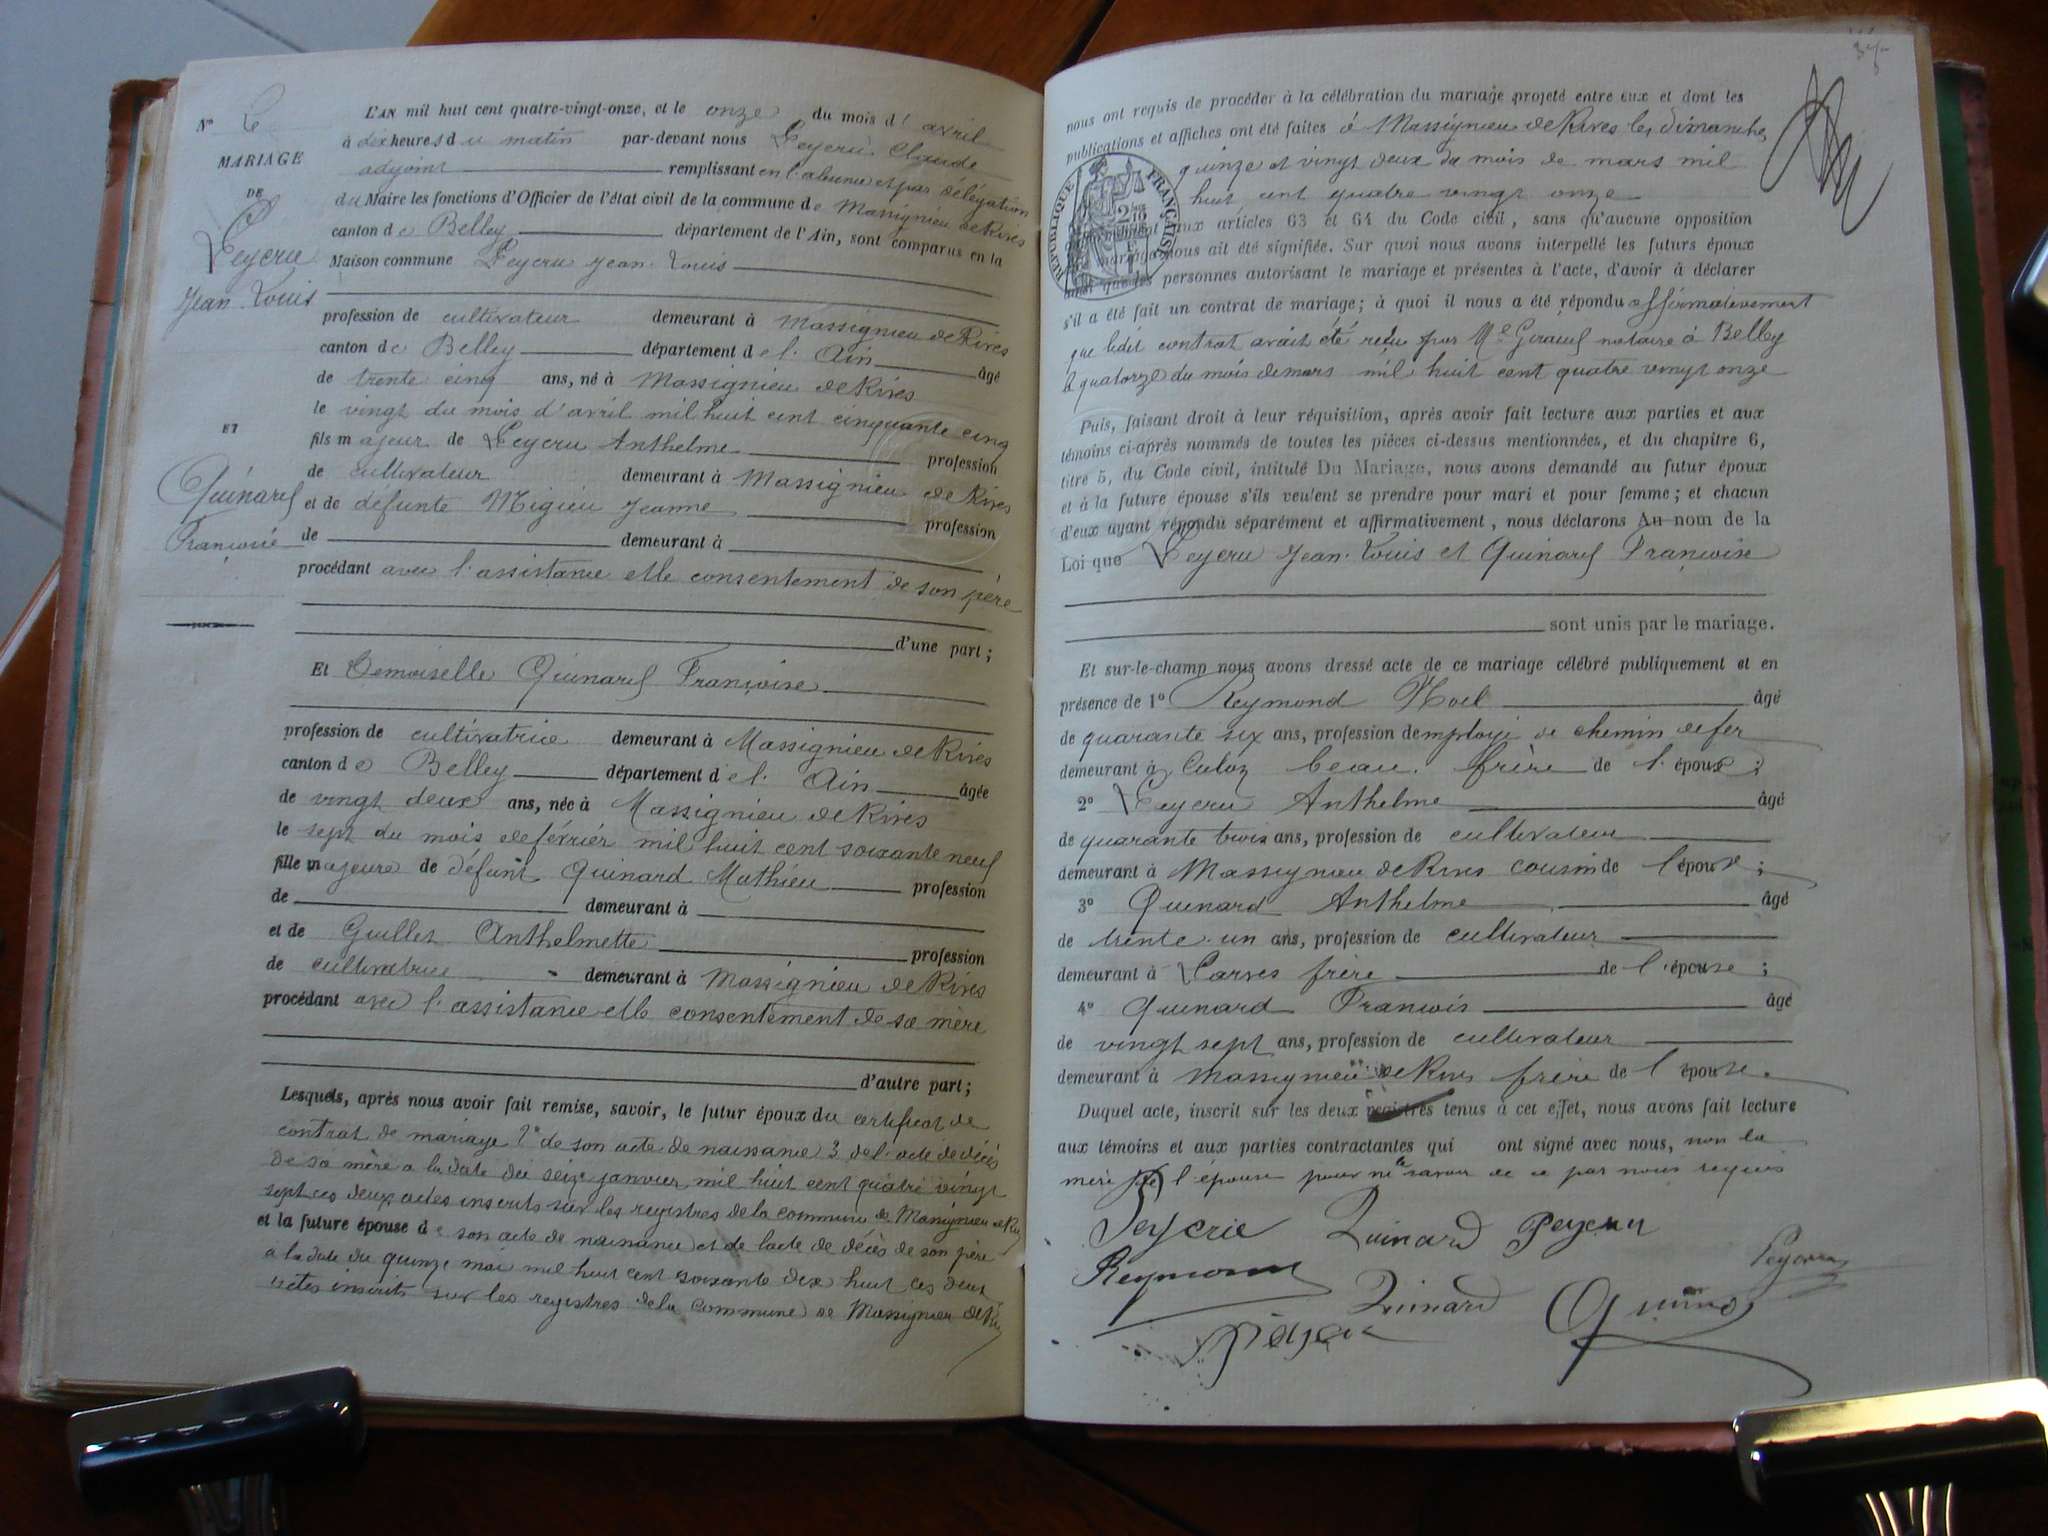 N° 6
MARIAGE
DE
Peycru
Jean-Louis
ET
Quinard
Françoise
L'AN mil huit cent quatre-vingt-onze, et le onze du mois d'avril
à dix heures du matin par-devant nous Peycru Claude
adjoint remplissant en l'absence et par délégation
du Maire les fonctions d'Officier de l'état civil de la commune de Massignieu de Rives
canton de Belley département de l'Ain, sont comparus en la
Maison commune Peycru Jean-Louis
profession de cultivateur demeurant à Massignieu de Rives
canton de Belley département de l'Ain âgé
de trente cinq ans, né à Massignieu de Rives
le vingt du mois d'avril mil huit cent cinquante cinq
fils majeur de Peycru Anthelme profession
de cultivateur demeurant à Massignieu de Rives
et de défunte Migieu Jeanne profession
de demeurant à
procédant avec l'assistance et le consentement de son père
d'une part;
Et Demoiselle Quinard Françoise
profession de cultivatrice demeurant à Massignieu de Rives
canton de Belley département de l'Ain âgée
de vingt deux ans, née à Massignieu de Rives
le sept du mois de février mil huit cent soixante neuf
fille majeure de défunt Quinard Mathieu profession
de demeurant à
et de Guillet Anthelmette profession
de cultivatrice demeurant à Massignieu de Rives
procédant avec l'assistance et le consentement de sa mère
d'autre part;
Lesquels, après nous avoir fait remise, savoir, le futur époux du certificat de
contrat de mariage 2° de son acte de naissance 3 de l'acte de décès
de sa mère a la date du seize janvier mil huit cent quatre vingt
sept ces deux actes inscrits sur les registres de la commune de Massignieu de Rives
et la future épouse de son acte de naissance et de l'acte de décès de son père
a la date du quinze mai mil huit cent soixante dix huit ces deux
actes inscrits sur les registres de la commune de Massignieu de Rives
nous ont requis de procéder à la célébration du mariage projeté entre eux et dont les
publications et affiches ont été faites à Massignieu de Rives les dimanches
quinze et vingt deux du mois de mars mil
huit cent quatre vingt onze
RÉPUBLIQUE FRANÇAISE
aux articles 63 et 64 du Code civil, sans qu'aucune opposition
nous ait été signifiée. Sur quoi nous avons interpellé les futurs époux
ainsi que les personnes autorisant le mariage et présentes à l'acte, d'avoir à déclarer
s'il a été fait un contrat de mariage; à quoi il nous a été répondu affirmativement
que ledit contrat avait été reçu par Me Giraud notaire à Belley
le quatorze du mois de mars mil huit cent quatre vingt onze
Puis, faisant droit à leur réquisition, après avoir fait lecture aux parties et aux
témoins ci-après nommés de toutes les pièces ci-dessus mentionnées, et du chapitre 6,
titre 5, du Code civil, intitulé Du Mariage, nous avons demandé au futur époux
et à la future épouse s'ils veulent se prendre pour mari et pour femme; et chacun
d'eux ayant répondu séparément et affirmativement, nous déclarons Au nom de la
Loi que Peycru Jean-Louis et Quinard Françoise
sont unis par le mariage.
Et sur-le-champ nous avons dressé acte de ce mariage célébré publiquement et en
présence de 1° Reymond Noel âgé
de quarante six ans, profession demploye de chemin de fer
demeurant à Culoz beau-frère de l'époux;
2° Peycru Anthelme âgé
de quarante trois ans, profession de cultivateur
demeurant à Massignieu de Rives cousin de l'époux;
3° Quinard Anthelme âgé
de trente-un ans, profession de cultivateur
demeurant à Parves frère de l'épouse;
4° Quinard François âgé
de vingt sept ans, profession de cultivateur
demeurant à Massignieu de Rives frère de l'épouse.
Duquel acte, inscrit sur les deux registres tenus à cet effet, nous avons fait lecture
aux témoins et aux parties contractantes qui ont signé avec nous, non la
mère de l'épouse pour ne le savoir de ce par nous requis
Peycru Quinard Peycru
Reymond Quinard Peycru